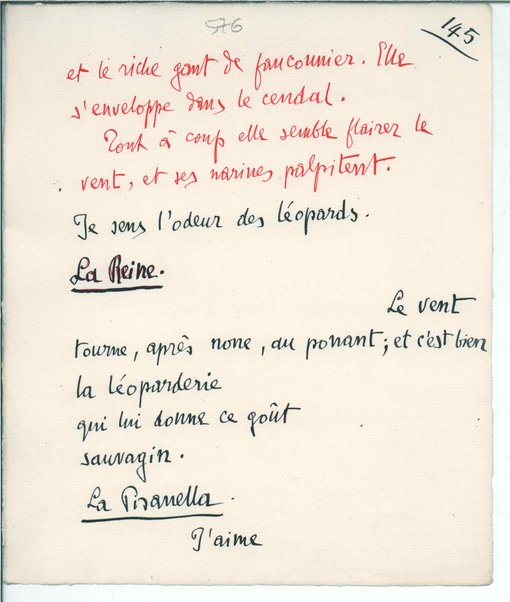 576
145
et le riche gant de fauconnier. Elle
s'enveloppe dans le cendal.
Tout à coup elle semble flairer le
vent, et ses narines palpitent.
Je sens l'odeur des léopards.
La Reine.
Le vent
tourne, après none, au ponant; et c'est bien
la léoparderie
qui lui donne ce goût
sauvagin.
La Pisanella.
J'aime